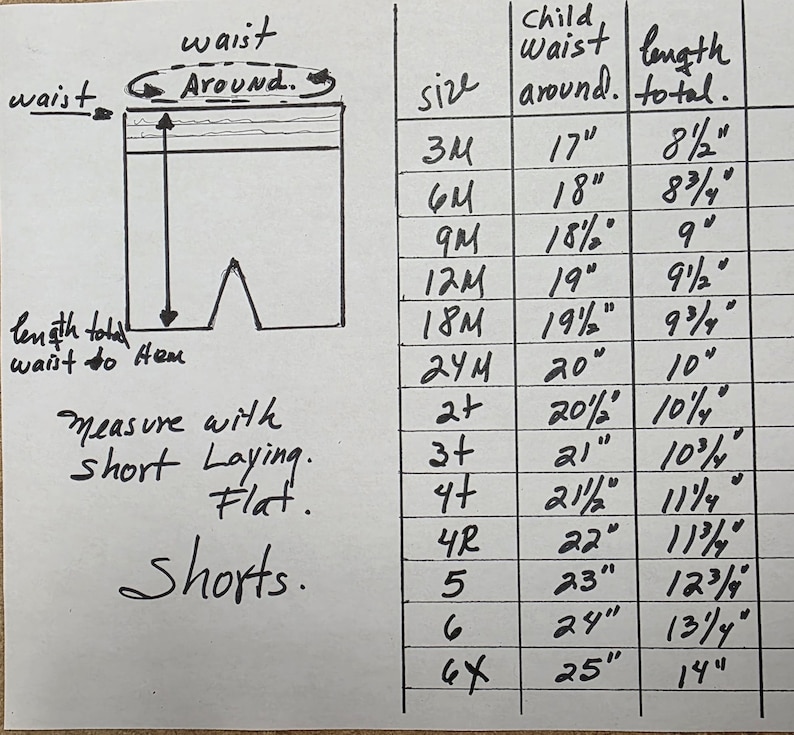 waist
Around.
waist
length total
waist to Hem
Measure with
short Laying.
Flat.
Shorts.
size	Child waist around.	length total.
3M	17"	8 1/2"
6M	18"	8 3/4"
9M	18 1/2"	9"
12M	19"	9 1/2"
18M	19 1/2"	9 3/4"
24M	20"	10"
2t	20 1/2"	10 1/4"
3t	21"	10 3/4"
4t	21 1/2"	11 1/4"
4R	22"	11 3/4"
5	23"	12 3/4"
6	24"	13 1/4"
6X	25"	14"